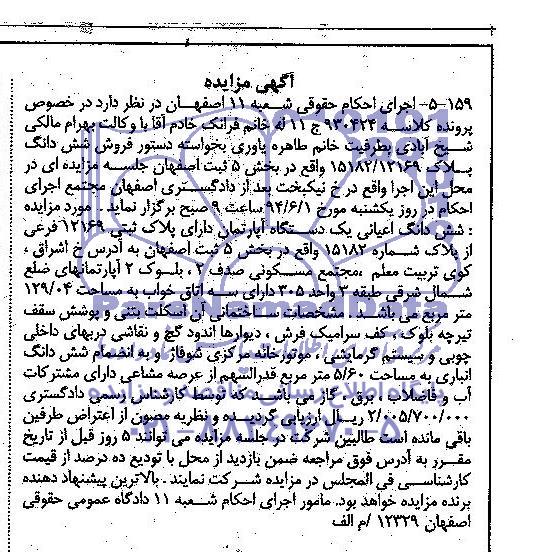 آگهی مزایده
۵-۱۵۹- اجرای احکام حقوقی شعبه ۱۱ اصفهان در نظر دارد در خصوص
پرونده کلاسه ۹۳۰۴۲۴ ج ۱۱ له خانم فرانک خادم آقا با وکالت بهرام مالکی
شیخ آبادی بطرفیت خانم طاهره یاوری بخواسته دستور فروش شش دانگ
پلاک ۱۵۱۸۲/۱۲۱۶۹ واقع در بخش ۵ ثبت اصفهان جلسه مزایده ای در
محل این اجرا واقع در خ نیکبخت بعد از دادگستری اصفهان مجتمع اجرای
احکام در روز یکشنبه مورخ ۹۴/۶/۱ ساعت ۹ صبح برگزار نماید . مورد مزایده
: شش دانگ اعیانی یک دستگاه آپارتمان دارای پلاک ثبتی ۱۲۱۶۹ فرعی
از پلاک شماره ۱۵۱۸۲ واقع در بخش ۵ ثبت اصفهان به آدرس خ اشراق ،
کوی تربیت معلم ،مجتمع مسکونی صدف ۲ ، بلوک ۲ آپارتمانهای ضلع
شمال شرقی طبقه ۳ واحد ۳۰۵ دارای سه اتاق خواب به مساحت ۱۲۹/۰۴
متر مربع می باشد . مشخصات ساختمانی آن اسکلت بتنی و پوشش سقف
تیرچه بلوک ، کف سرامیک فرش ، دیوارها اندود گچ و نقاشی دربهای داخلی
چوبی و سیستم گرمایشی ، موتورخانه مرکزی شوفاژ و به انضمام شش دانگ
انباری به مساحت ۵/۶۰ متر مربع قدرالسهم از عرصه مشاعی دارای مشترکات
آب و فاضلاب ، برق ، گاز می باشد که توسط کارشناس رسمی دادگستری
۲/۰۰۵/۷۰۰/۰۰۰ ریال ارزیابی گردیده و نظریه مصون از اعتراض طرفین
باقی مانده است طالبین شرکت در جلسه مزایده می توانند ۵ روز قبل از تاریخ
مقرر به آدرس فوق مراجعه ضمن بازدید از محل با تودیع ده درصد از قیمت
کارشناسی فی المجلس در مزایده شرکت نمایند . بالاترین پیشنهاد دهنده
برنده مزایده خواهد بود. مامور اجرای احکام شعبه ۱۱ دادگاه عمومی حقوقی
اصفهان ۱۲۳۲۹ /م الف
پایگاه اطلاع رسانی مناقصه و مزایده
۰۲۱-۸۸۳۴۹۶۷۰-۵